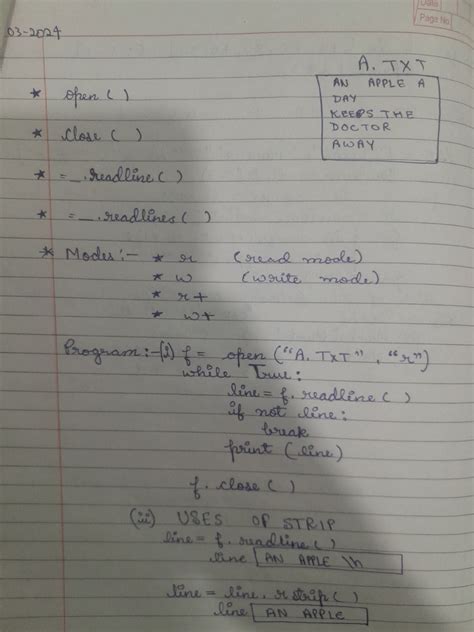 Date
Page No.
03-2024
A. TXT
AN APPLE A
DAY
KEEPS THE
DOCTOR
AWAY
* open ( )
* close ( )
* = _ . readline ( )
* = _ . readlines ( )
* Modes :- * r (read mode)
* w (write mode)
* r+
* w+
Program :- (i) f = open ("A. TXT" , "r")
while True:
line = f. readline ( )
if not line:
break
print (line)
f. close ( )
(ii) USES OF STRIP
line = f. readline ( )
line AN APPLE \n
line = line. rstrip ( )
line AN APPLE